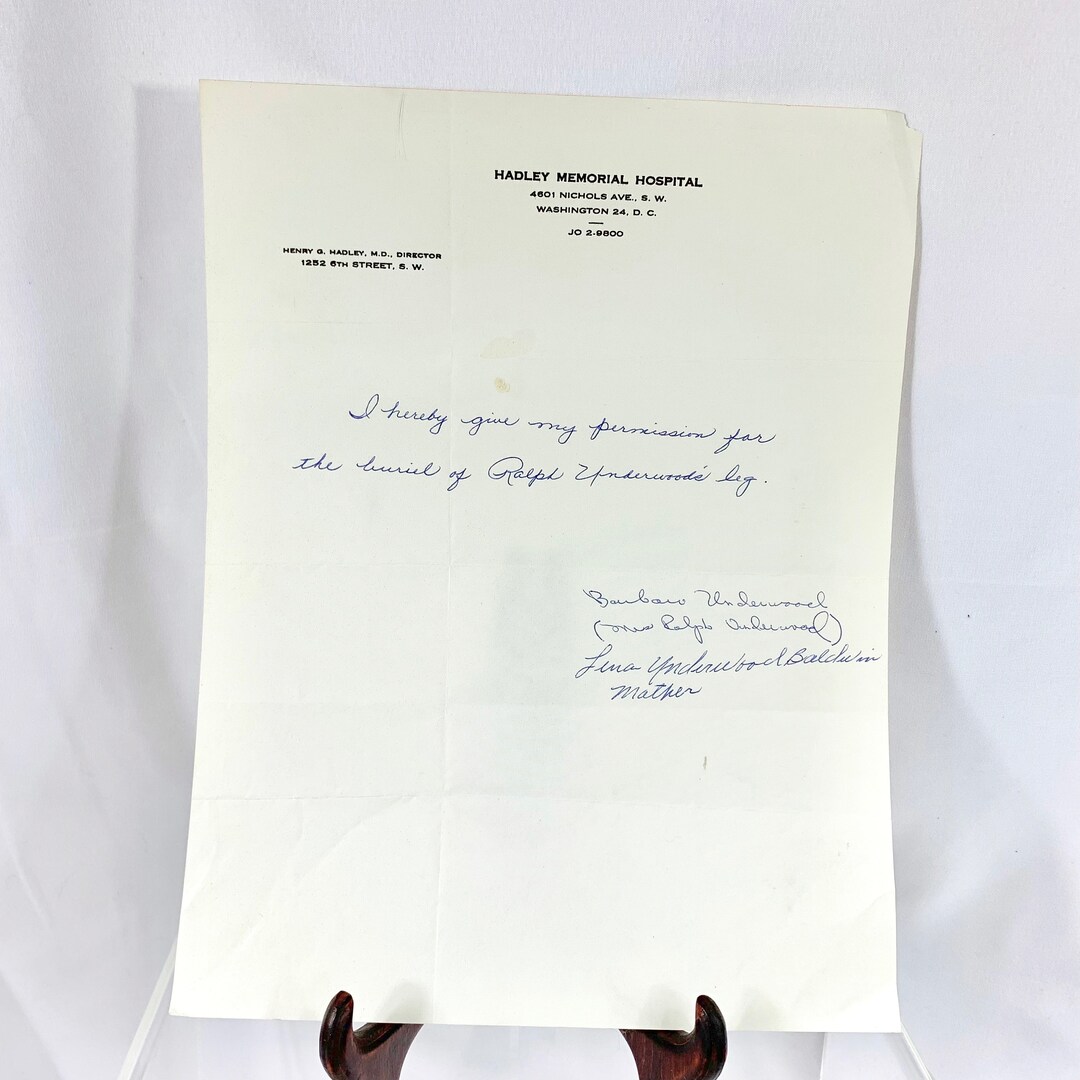 HADLEY MEMORIAL HOSPITAL
4601 NICHOLS AVE., S. W.
WASHINGTON 24, D. C.
JO 2-9800
HENRY G. HADLEY, M.D., DIRECTOR
1252 6TH STREET, S. W.
I hereby give my permission for
the buriel of Ralph Underwood's leg.
Barbara Underwood
(Mrs Ralph Underwood)
Lena Underwood Baldwin
Mother